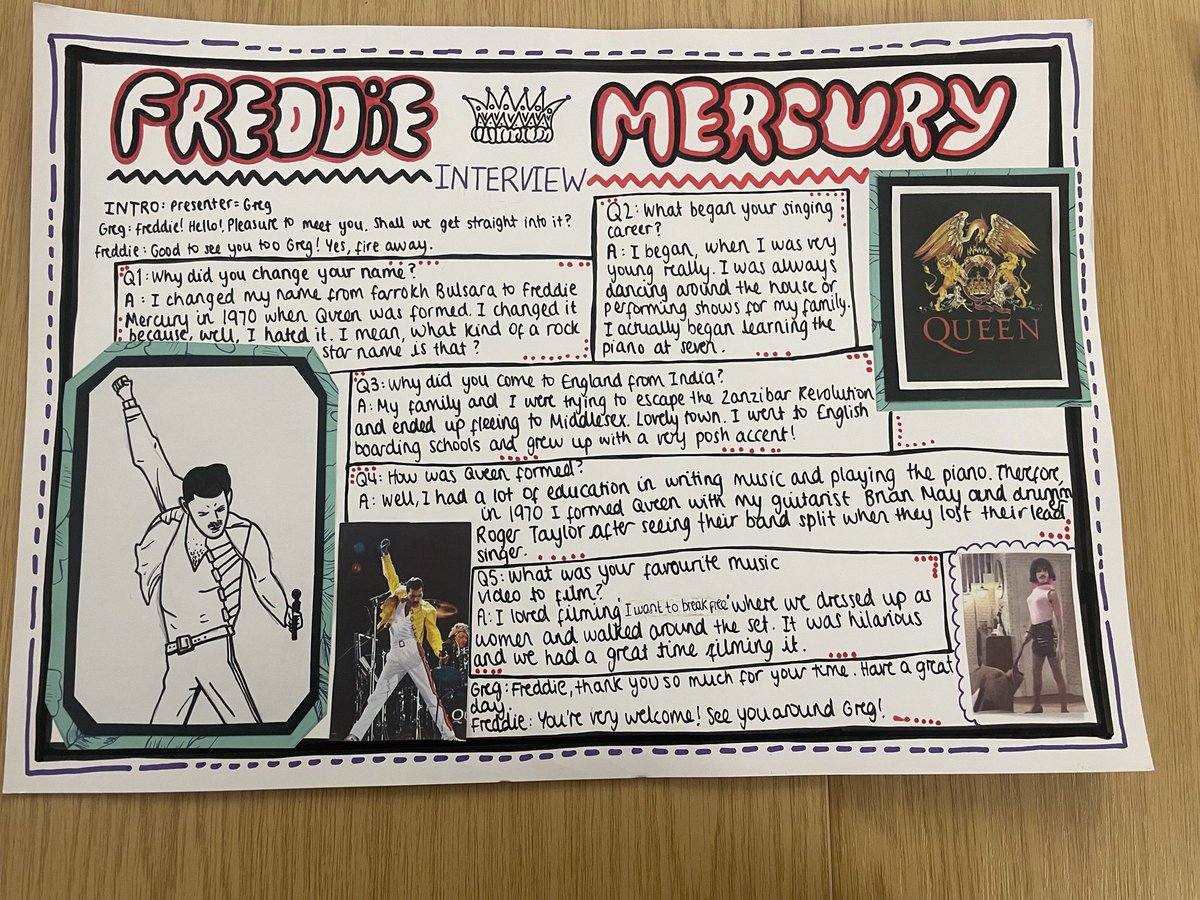 FREDDiE MERCURY
INTERVIEW
INTRO: Presenter= Greg
Greg: Freddie! Hello! Pleasure to meet you. Shall we get straight into it?
Freddie: Good to see you too Greg! Yes, fire away.
Q1: Why did you change your name?
A: I changed my name from Farrokh Bulsara to Freddie
Mercury in 1970 when Queen was formed. I changed it
because, well, I hated it. I mean, what kind of a rock
star name is that?
Q2: What began your singing
career?
A: I began, when I was very
young really. I was always
dancing around the house or
performing shows for my family.
I actually began learning the
piano at seven.
QUEEN
Q3: Why did you come to England from India?
A: My family and I were trying to escape the Zanzibar Revolution
and ended up fleeing to Middlesex. Lovely town. I went to English
boarding schools and grew up with a very posh accent!
Q4: How was Queen formed?
A: Well, I had a lot of education in writing music and playing the piano. Therefore,
in 1970 I formed Queen with my guitarist Brian May and drumm
Roger Taylor after seeing their band split when they lost their lead
singer.
Q5: What was your favourite music
video to film?
A: I loved filming 'I want to break free' where we dressed up as
women and walked around the set. It was hilarious
and we had a great time filming it.
Greg: Freddie, thank you so much for your time. Have a great
day.
Freddie: You're very welcome! See you around Greg!